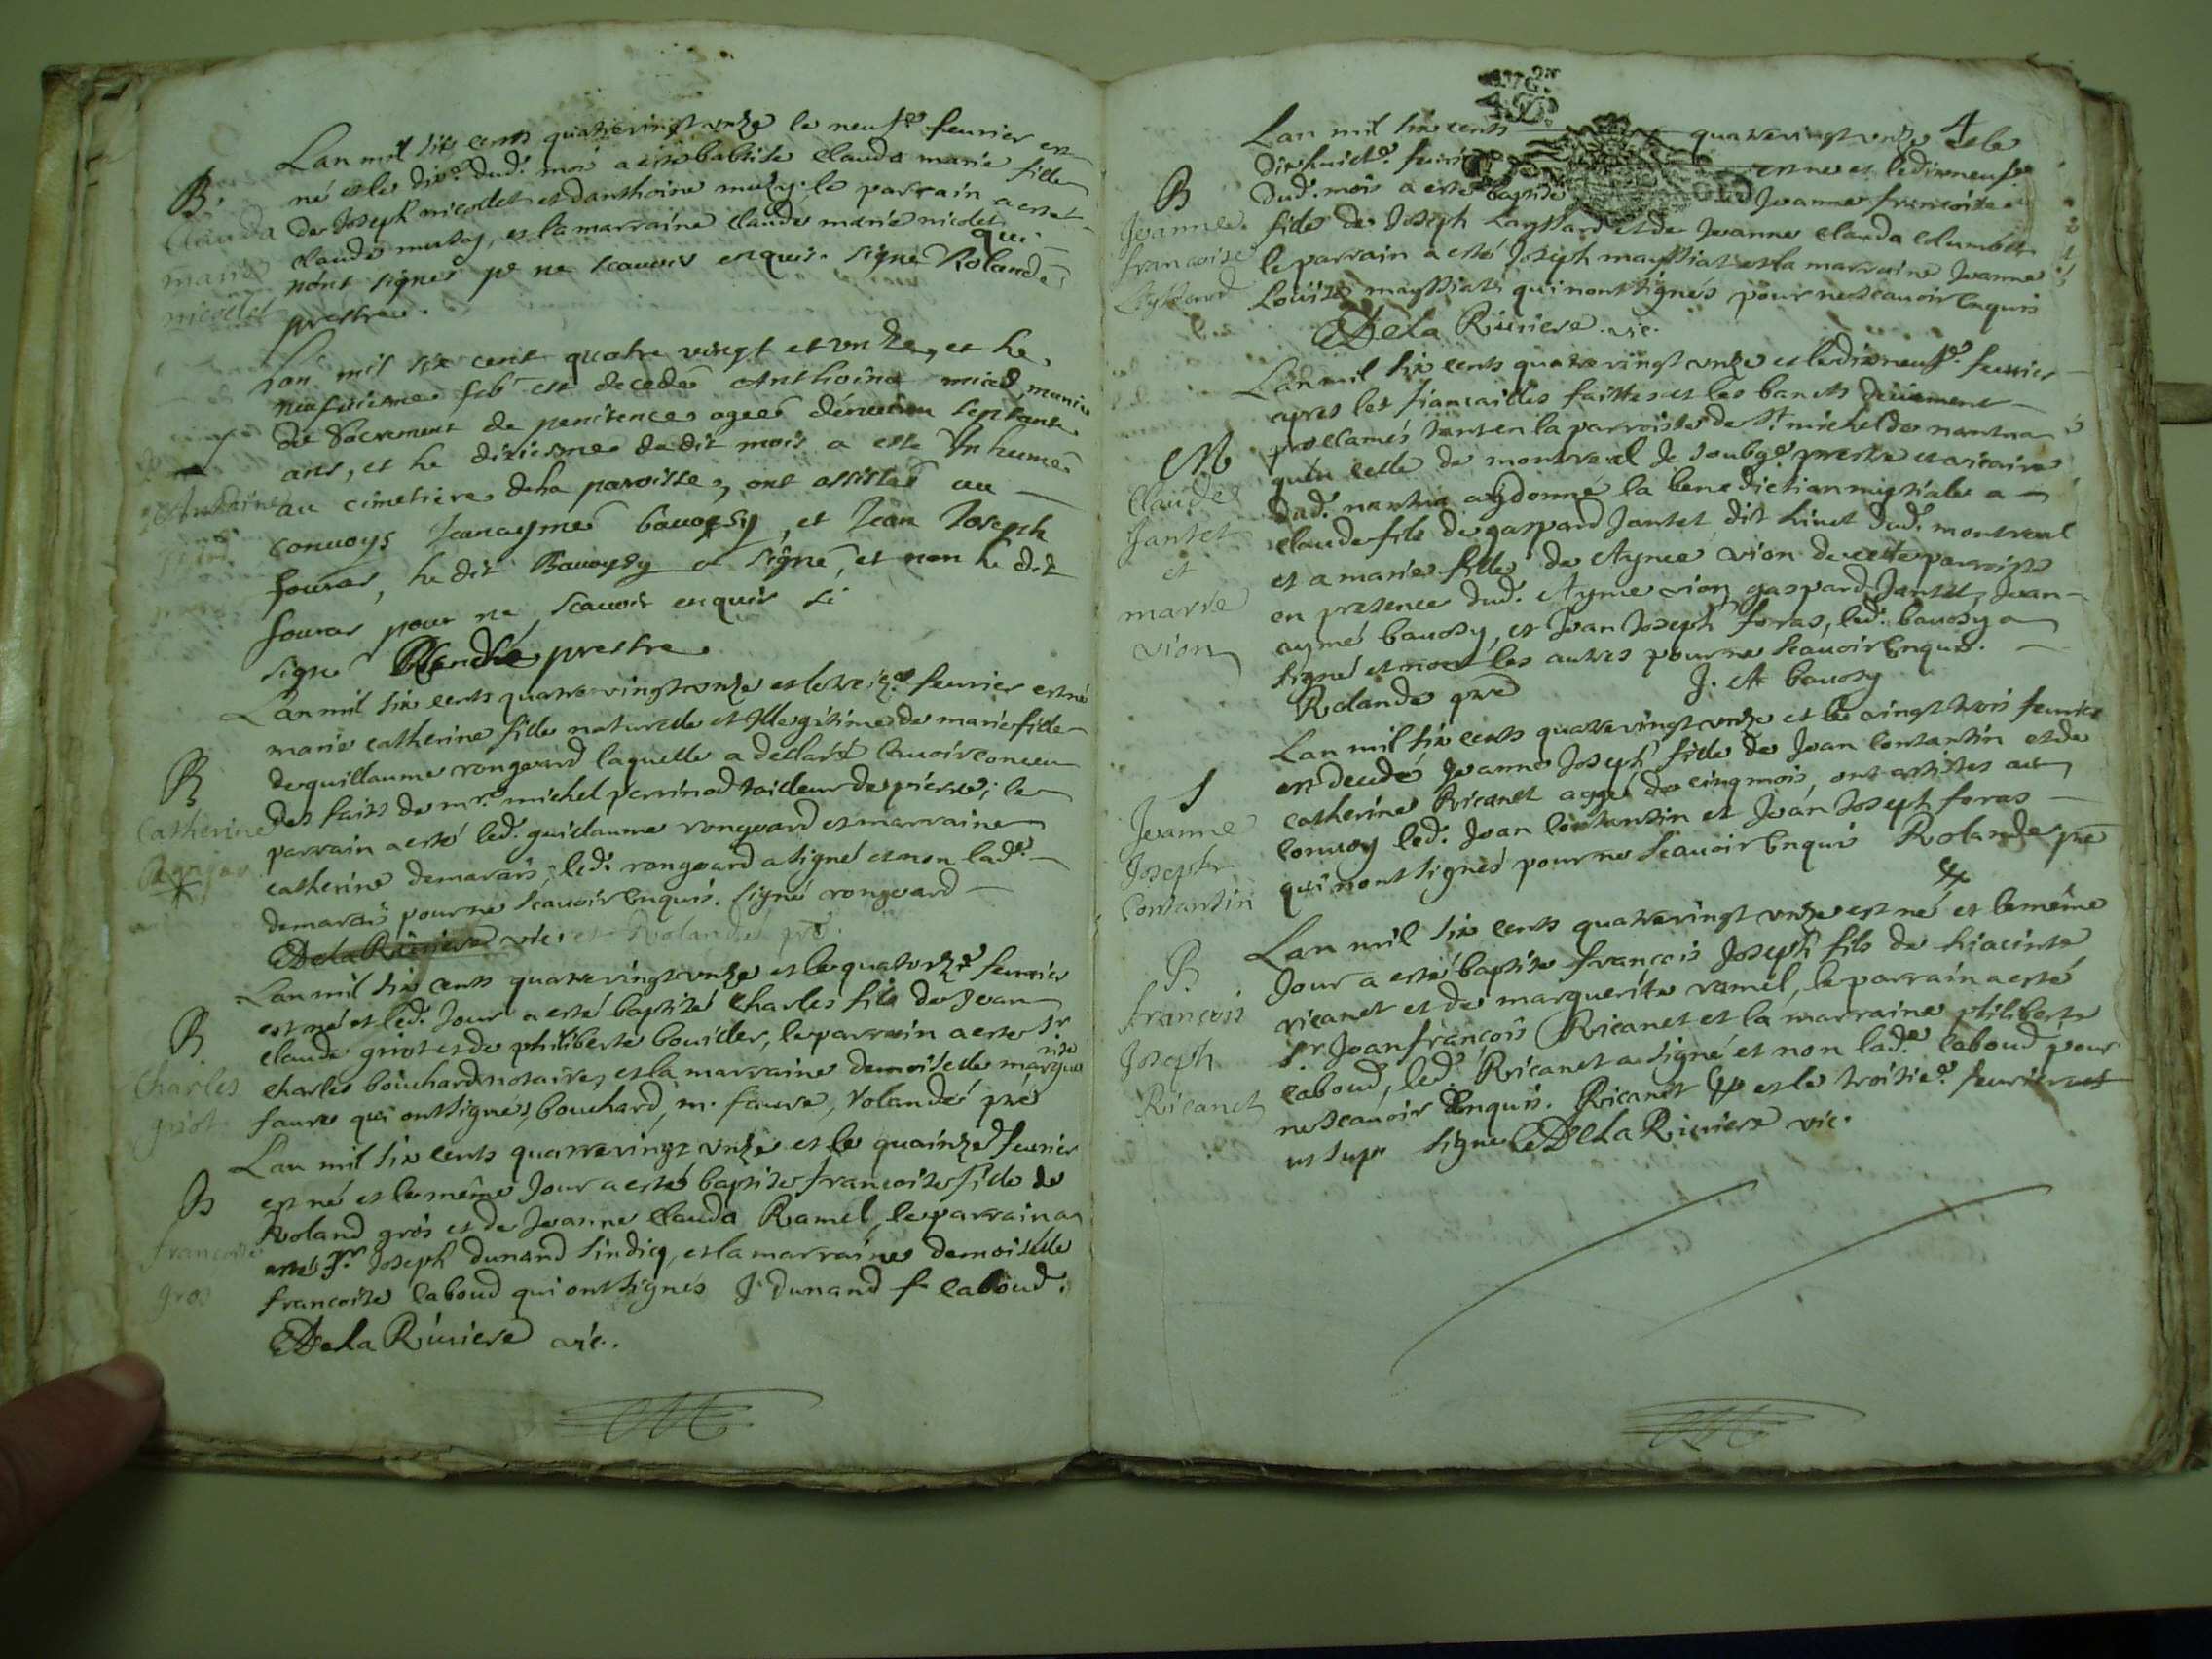 Lan mil six cents quatrevingt unze le neufe feurier est
B.
né et le dixe. dud. moi a esté babtisé Clauda marie fille
Clauda
de Joseph nicollet et danthoine muzy; le parrain a estet
marie
claude muzy, et la marraine claude marie nicolet
qui
nicollet
nont signes pr ne scauoir enquis. signé Rolandé
prestre.
Lan mil six cent quatre vingt et unze, et le
neufuiesme feb est decedée Anthoine munie
du Sacrement de penitence agee denuiron septante
ans, et le diziesme dedit mois a esté Inhumée
Anthoine
au cimetiere deha paroisse, ont assistés au
conuoys Jeanaymé bauozy, et Jean Joseph
fouras, le dit Bauozy a signé, et non le dit
fouras pour ne scauoir enquis si
signe Rolandé prestre
Lan mil six cents quatrevingt unze et le treize feurier est né
marie catherine fille naturelle et Illegitime de marie fille
B
de guillaume rongeard laquelle a declaré lauoir conceu
des faits de mre. michel perrinod tailleur de pierre; le
Catherine
parrain a esté led. guillaume rongeard et marraine
catherine demarais, led. rongeard a signé et non lade.
demarais pour ne scauoir Enquis. signé rongeard
De la Riuiere vic. et Rolandé pre.
Lan mil six cents quatrevingt unze et le quatorze feurier
est né et led. Jour a esté baptisé Charles fils de Jean
B
claude griot et de philiberte bouiller, le parrain a esté Sr
Charles
charles bouchard notaire, et la marraine demoiselle margue
rite
griot
faure qui ont signés, bouchard, m. faure, Rolandé pre
Lan mil six cents quatrevingt unze et le quainze feurier
B
est né et le même Jour a esté baptisé francoise fille de
Roland gros et de Jeanne clauda Ramel, le parrain a
francoise
esté Sr. Joseph dunand sindicq, et la marraine demoiselle
gros
francoise caboud qui ont signés J. dunand f caboud.
De la Riuiere vic.
4
Lan mil six cents quatrevingt unze et le
dixhuicte. feurier est né et le dixneufe
B
dud. mois a esté baptisé Jeanne francoise
Jeanne
fille de Joseph Layssard et de Jeanne clauda Columbet
francoise
le parrain a esté Joseph mayssiat et la marraine Jeanne
Layssard
Louise mayssiat qui nont signés pour ne scauoir Enquis
De la Riuiere. vic.
Lan mil six cents quatrevingt unze et le dixneufe. feurier
apres les fiancailles faittes et les bancts deuement
proclamés tant en la parroisse de St. michel de nantua
M
quen celle de montreal Je soubge prestre et vicaire
Claude
dud. nantua ay donné la benediction nuptiale a
Jantet
claude fils de gaspard Jantet dit hinet dud. montreal
et
et a marie fille de Aymee vion de cette parroisse
marie
en presence dud. Ayme vion gaspard Jantet, Jean
vion
aymé bauozy, et Jean Joseph foras, led. bauozy a
signé et non les autres pour ne scauoir Enquis.
Rolandé pre J. A bauozy
Lan mil six cents quatrevingt unze et le vingt trois feurier
est decedé Jeanne Joseph fille de Jean Contantin et de
S
catherine Ricanet aagé de cinq mois, ont assistes au
Jeanne
conuoy led. Jean Contantin et Jean Joseph foras
Joseph
qui nont signés pour ne scauoir Enquis Rolandé pre
Contantin
Lan mil six cents quatrevingt unze est né et le même
B
Jour a esté baptisé francois Joseph fils de hiacinte
francois
ricanet et de marguerite ramel, le parrain a esté
Joseph
Sr. Jean francois Ricanet et la marraine philiberte
Ricanet
caboud, led. Ricanet a signé et non lade. caboud pour
ne scauoir Enquis. Ricanet et le troisiee. feurier
ut supr signe De La Riuiere vic.